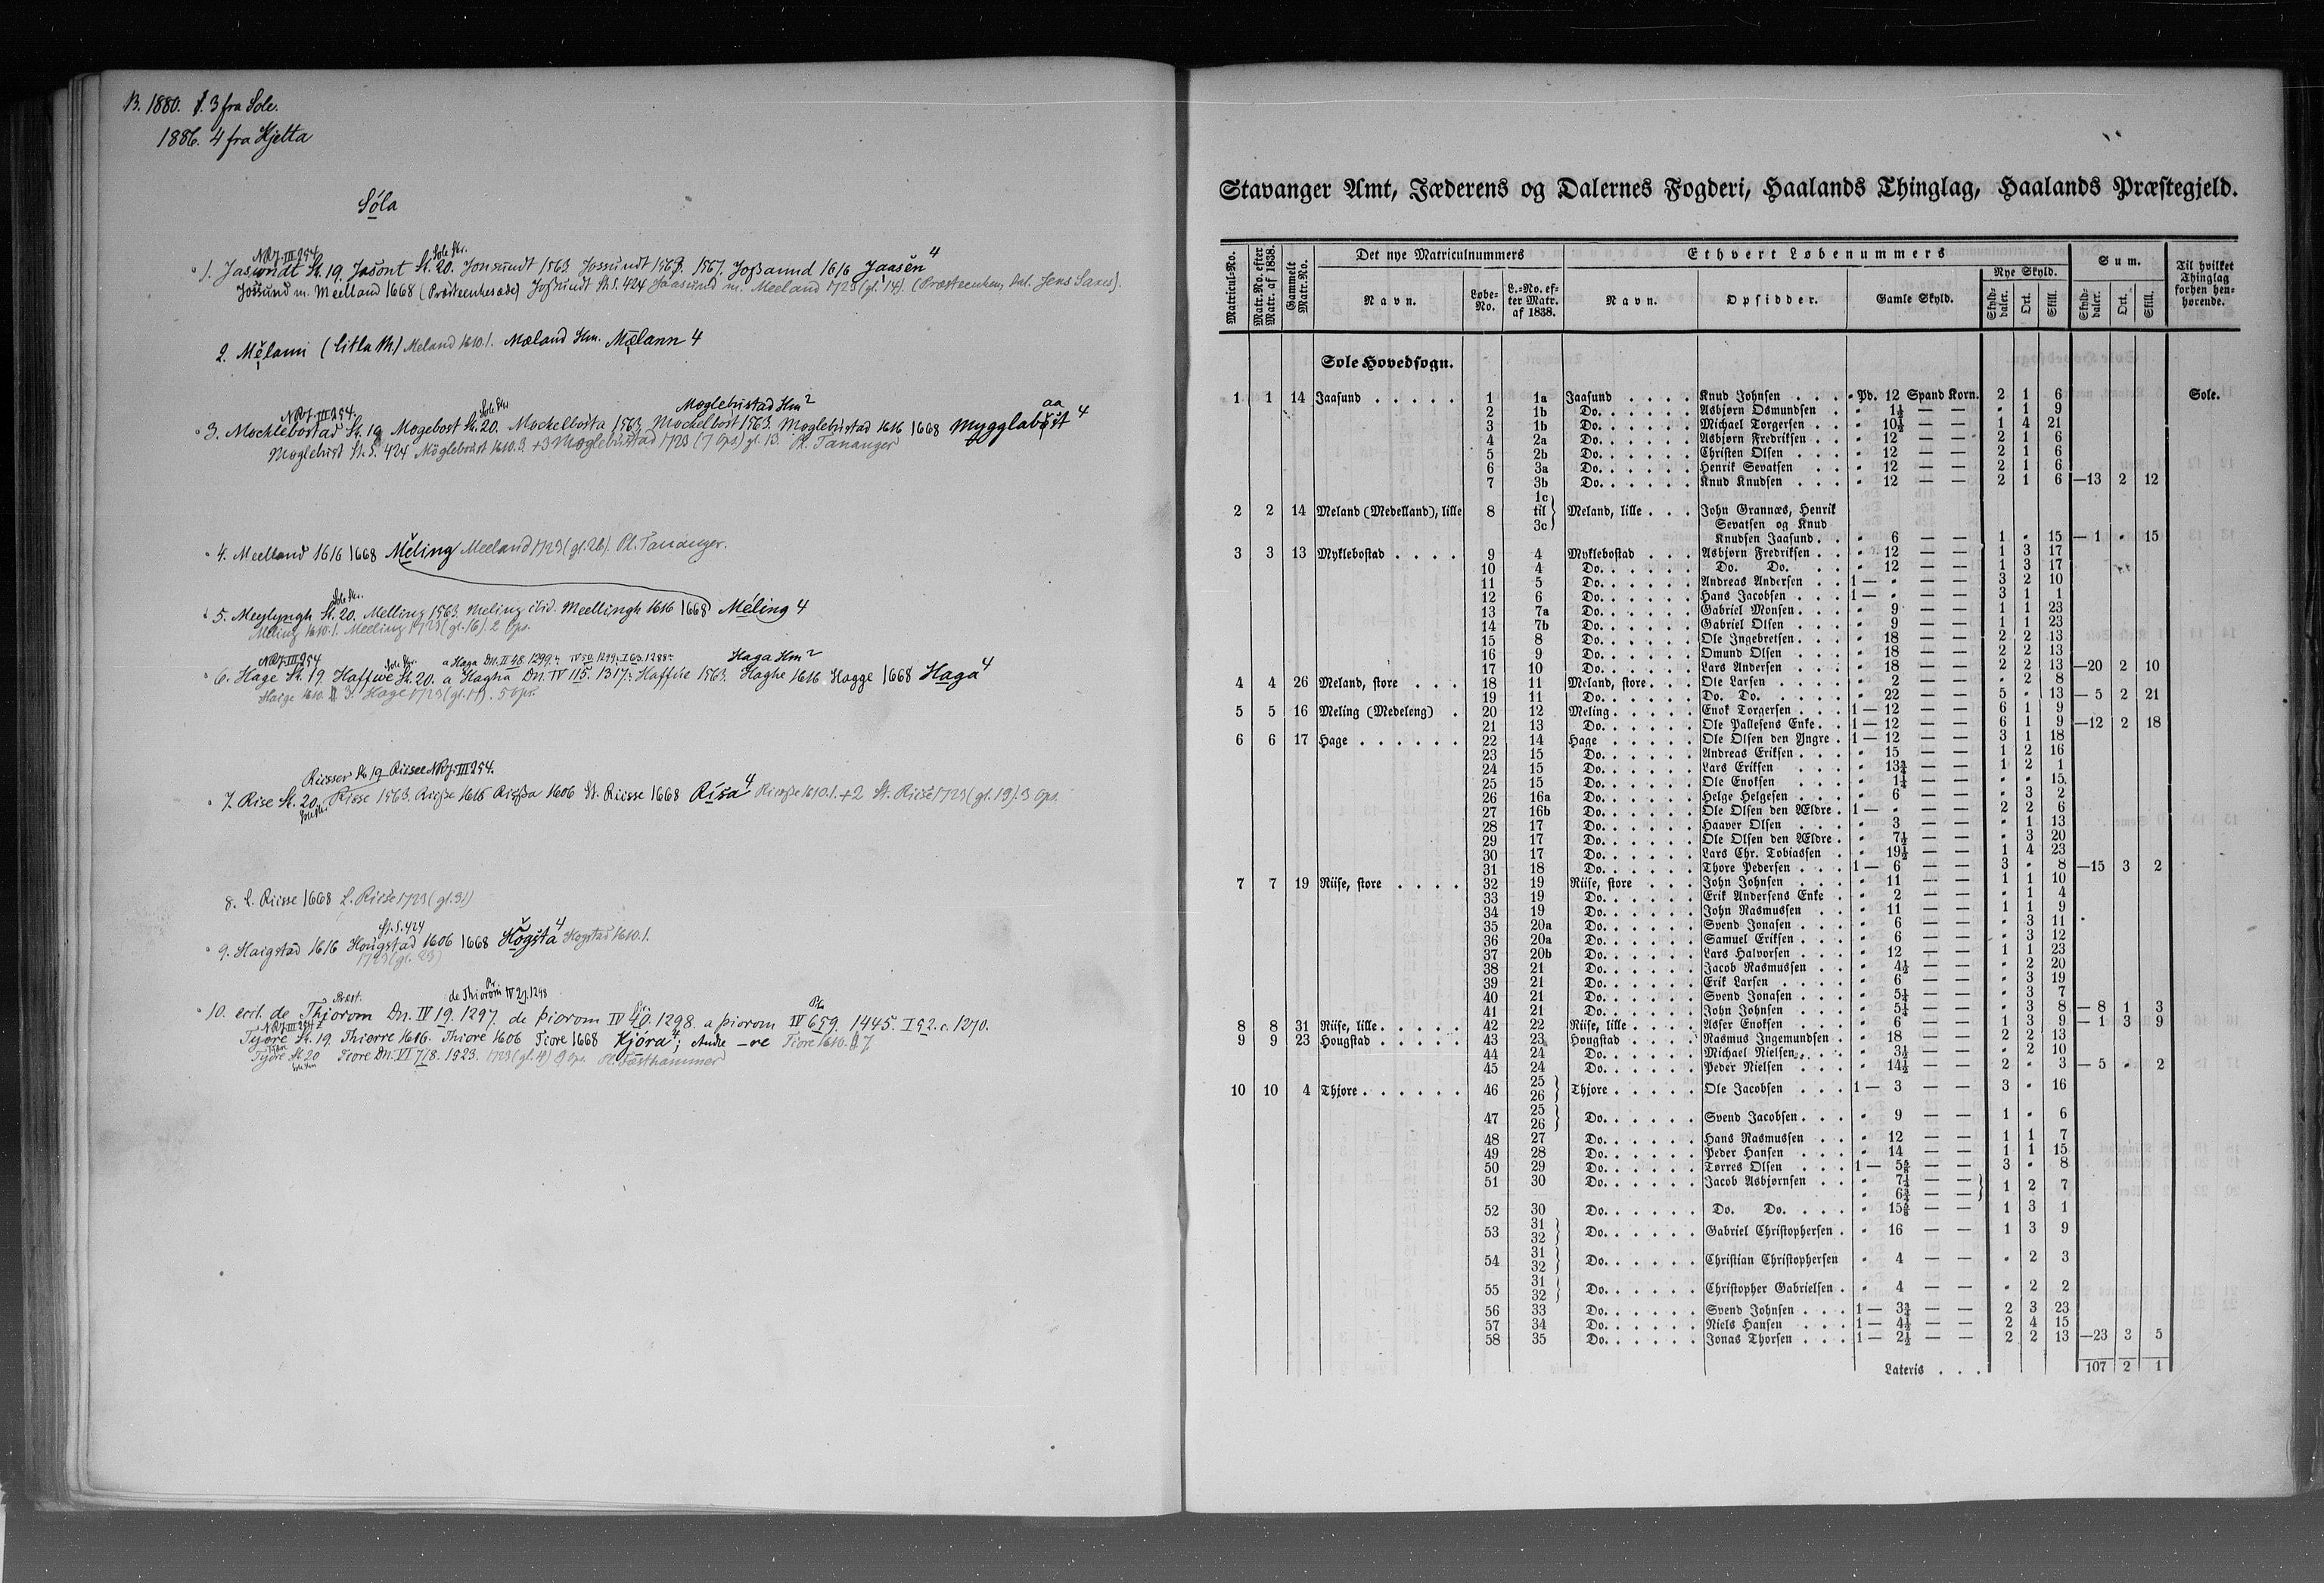 B. 1880. 3 fra Sole.
1886. 4 fra Kjelta
Sóla
N.R.J. III 254 Sole Skr.
1. Jaswndt St. 19. Josont St. 20. Jonsundt 1563. Jossundt 1567. Joßannd 1616 Jaasên 4
Jossund m. Meelland 1668 (Præsteenkesæde) Joßundt St. S. 424 Jaasund m. Meeland 1723 (gl. 14).
2. Mêlann (litla M.) Meland 1610.1. Mæland Hm. Mælann 4
N.R.J. III 254. Sole Skr. Moglebustad Hm 2 aa
3. Mochlebostad St. 19 Mogebost St. 20. Mochelbosta 1563 Mochelbost 1563. Moglebustad 1616 1668 Mygglabost 4
Moglebust St. S. 424 Möglebust 1610.3 +3 Moglebustad 1723 (7 Ops) gl. 13. Pl. Tananger
4. Meelland 1616 1668 Mêling Meeland 1723 (gl. 26). Pl. Tananger.
Sole Skr.
5. Meylyngh St. 20. Melling 1563. Meling ibid. Meellingh 1616 1668 Méling 4
Meling 1610.1. Meeling 1723 (gl. 16). 2 Ops.
N.R.J. III 254 Sole Skr. a Haga Dn. II 48. 1299. IV 50. 1299. I 63. 1288 Haga Hm 2
6. Hage St. 19. Haffwe St. 20. a Hagha Dn. IV 115. 1317. Haffue 1563. Haghe 1616. Hagge 1668 Haga 4
Haige 1610. 3. Hage 1723 (gl. 17). 5 Ops.
Riisser St. 19 Riisee N.R.J. III 254.
7. Rise St. 20. Riisse 1563. Riisße 1616 Riisßa 1606 St. Riisse 1668 Rísa 4 Riisße 1610.1. +2 St. Riise 1723 (gl. 19). 3 Ops.
Sole Skr.
8. l. Riisse 1668 L. Riise 1723 (gl. 31)
St. S. 424
9. Haigstad 1616 Hougstad 1606 1668 Högsta 4 Hogstad 1610.1.
1723 (gl. 23)
Præst. de Thiorom IV 2j. 1298
10. eccl. de Thjorom Dn. IV 19. 1297. de Þiorom IV 40. 1298. a þiorom IV 659. 1445. I 92. c. 1270.
N.R.J. III 254
Tyøre St. 19. Thiørre 1616. Thiore 1606 Tiore 1668 Kjóra 4; Andre -re Tiore 1610. 7
Tyøre St. 20 Tiore Dn. VI 718. 1523. 1723 (gl. 4) 9 Ops. Pl. Tøsthammer
Stavanger Amt, Jæderens og Dalernes Fogderi, Haalands Thinglag, Haalands Præstegjeld.
Matricul-No. | Matr.No. efter Matr. af 1838. | Gammelt Matr.No. | Det nye Matriculnummers | Ethvert Løbenummers | Sum. | Til hvilket Thinglag forhen henhørende.
Navn. | Løbe-No. | L.-No. efter Matr. af 1838. | Navn. | Opsidder. | Gamle Skyld. | Nye Skyld. | Skylddaler. | Ort. | Skill. | Skylddaler. | Ort. | Skill.
Sole Hovedsogn.
1 1 14 Jaasund . . . . . 1 1a Jaasund . . . . Knud Johnsen . . . " Pd. 12 Spand Korn. 2 1 6 Sole.
2 1b Do. . . . . . Asbjørn Osmundsen . " 1½ — — " 1 9
3 1b Do. . . . . . Michael Torgersen . . " 10½ — — 1 4 21
4 2a Do. . . . . . Asbjørn Fredriksen . . " 12 — — 2 1 6
5 2b Do. . . . . . Christen Olsen . . . " 12 — — 2 1 6
6 3a Do. . . . . . Henrik Sevatsen . . " 12 — — 2 1 6
7 3b Do. . . . . . Knud Knudsen . . . " 12 — — 2 1 6 —13 2 12
2 2 14 Meland (Medelland), lille 8 1c til 3c } Meland, lille . . . John Grannæs, Henrik
Sevatsen og Knud
Knudsen Jaasund . . " 6 — — 1 " 15 — 1 " 15
3 3 13 Myklebostad . . . . 9 4 Myklebostad . . . Asbjørn Fredriksen . . " 12 — — 1 3 17
10 4 Do. . . . . . Do. Do. . . . " 12 — — 1 3 17
11 5 Do. . . . . . Andreas Andersen . . 1 — " — — 3 2 10
12 6 Do. . . . . . Hans Jacobsen . . . 1 — " — — 3 1 1
13 7a Do. . . . . . Gabriel Monsen . . . " 9 — — 1 1 23
14 7b Do. . . . . . Gabriel Olsen . . . " 9 — — 1 1 23
15 8 Do. . . . . . Ole Ingebretsen . . . " 18 — — 2 2 13
16 9 Do. . . . . . Omund Olsen . . . " 18 — — 2 2 13
17 10 Do. . . . . . Lars Andersen . . . " 18 — — 2 2 13 —20 2 10
4 4 26 Meland, store . . . 18 11 Meland, store . . . Ole Larsen . . . . " 2 — — " 2 8
19 11 Do. . . . . . Do. Do. . . . . " 22 — — 5 " 13 — 5 2 21
5 5 16 Meling (Medeleng) . 20 12 Meling . . . . . Enok Torgersen . . . 1 — 12 — — 6 1 9
21 13 Do. . . . . . Ole Pallesens Enke . . 1 — 12 — — 6 1 9 —12 2 18
6 6 17 Hage . . . . . . 22 14 Hage . . . . . Ole Olsen den Yngre . 1 — 12 — — 3 1 18
23 15 Do. . . . . . Andreas Eriksen . . . " 15 — — 1 2 16
24 15 Do. . . . . . Lars Eriksen . . . " 13¾ — — 1 2 1
25 15 Do. . . . . . Ole Enoksen . . . " 1¼ — — " " 15
26 16a Do. . . . . . Helge Helgesen . . . " 6 — — " 3 2
27 16b Do. . . . . . Ole Olsen den Ældre . 1 — " — — 2 2 6
28 17 Do. . . . . . Haaver Olsen . . . " 3 — — " 1 13
29 17 Do. . . . . . Ole Olsen den Ældre . " 7½ — — " 3 20
30 17 Do. . . . . . Lars Chr. Tobiassen . " 19½ — — 1 4 23
31 18 Do. . . . . . Thore Pedersen . . . 1 — 6 — — 3 " 8 —15 3 2
7 7 19 Riise, store . . . . 32 19 Riise, store . . . John Johnsen . . . " 11 — — 1 1 10
33 19 Do. . . . . . Erik Andersens Enke . " 2 — — " 1 4
34 19 Do. . . . . . John Rasmussen . . " 11 — — 1 1 9
35 20a Do. . . . . . Svend Jonasen . . . " 6 — — " 3 11
36 20a Do. . . . . . Samuel Eriksen . . . " 6 — — " 3 12
37 20b Do. . . . . . Lars Halvorsen . . . " 12 — — 1 1 23
38 21 Do. . . . . . Jacob Rasmussen . . " 4½ — — " 2 20
39 21 Do. . . . . . Erik Larsen . . . . " 6 — — " 3 19
40 21 Do. . . . . . Svend Jonasen . . . " 5¼ — — " 3 7
41 21 Do. . . . . . John Johnsen . . . " 5¼ — — " 3 8 — 8 1 3
8 8 31 Riise, lille . . . . . 42 22 Riise, lille . . . . Asser Enoksen . . . " 6 — — 1 3 9 — 1 3 9
9 9 23 Hougstad . . . . . 43 23 Hougstad . . . . Rasmus Ingemundsen . " 18 — — 2 2 13
44 24 Do. . . . . . Michael Nielsen . . . " 3½ — — " 2 10
45 24 Do. . . . . . Peder Nielsen . . . " 14½ — — 2 " 3 — 5 " 2
10 10 4 Thjore . . . . . . 46 25 26 } Thjore . . . . . Ole Jacobsen . . . 1 — 3 — — 3 " 16
47 25 26 } Do. . . . . . Svend Jacobsen . . . " 9 — — 1 " 6
48 27 Do. . . . . . Hans Rasmussen . . " 12 — — 1 1 7
49 28 Do. . . . . . Peder Hansen . . . " 14 — — 1 1 15
50 29 Do. . . . . . Tørres Olsen . . . 1 — 5⅝ — — 3 " 8
51 30 Do. . . . . . Jacob Asbjørnsen . . " 7¼ — — } 1 2 7
" 6¾ — —
52 30 Do. . . . . . Do. Do. . . . . " 15⅝ — — 1 3 1
53 31 32 } Do. . . . . . Gabriel Christophersen . " 16 — — 1 3 9
54 31 32 } Do. . . . . . Christian Christophersen " 4 — — " 2 3
55 31 32 } Do. . . . . . Christopher Gabrielsen . " 4 — — " 2 2
56 33 Do. . . . . . Svend Johnsen . . . 1 — 3¾ — — 2 3 23
57 34 Do. . . . . . Niels Hansen . . . 1 — 4½ — — 2 4 15
58 35 Do. . . . . . Jonas Thorsen . . . 1 — 2½ — — 2 2 13 —23 3 5
Lateris . . . 107 2 1